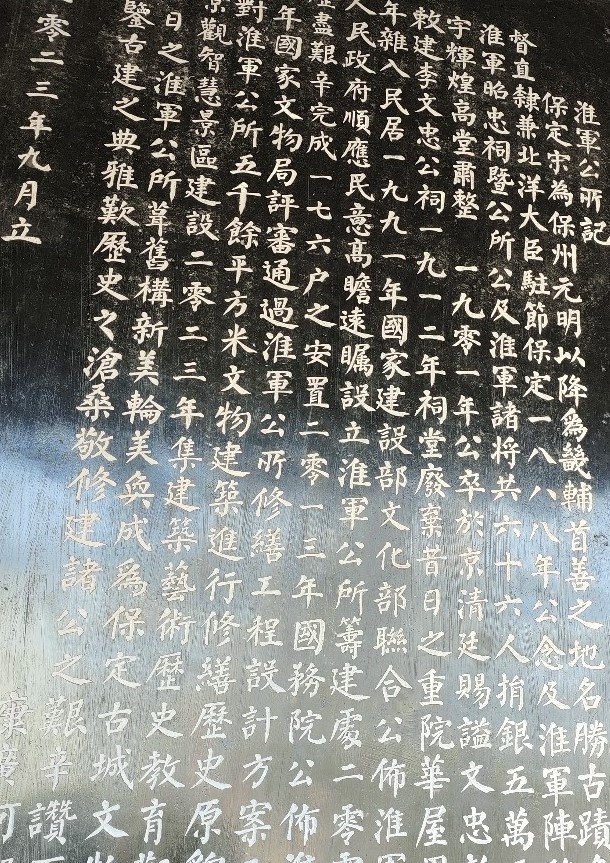 淮軍公所記
保定宋為保州元明以降爲畿輔首善之地名勝古蹟
督直隸兼北洋大臣駐節保定一八八八年公念及淮軍陣
淮軍昭忠祠暨公所公及淮軍諸将共六十六人捐銀五萬
宇輝煌高堂肅整 一九零一年公卒於京清廷賜謚文忠
敕建李文忠公祠一九一二年祠堂廢棄昔日之重院華屋
年雜入民居一九九一年國家建設部文化部聯合公佈淮軍
人民政府順應民意高瞻遠矚設立淮軍公所籌建處二零
盡艱辛完成一七六户之安置二零一三年國務院公佈
年國家文物局評審通過淮軍公所修繕工程設計方案
對淮軍公所五千餘平方米文物建築進行修繕歷史原
景觀智慧景區建設二零二三年集建築藝術歷史教育
日之淮軍公所葺舊構新美輪美奐成爲保定古城文
鑒古建之典雅歎歷史之滄桑敬修建諸公之艱辛讚
零二三年九月立